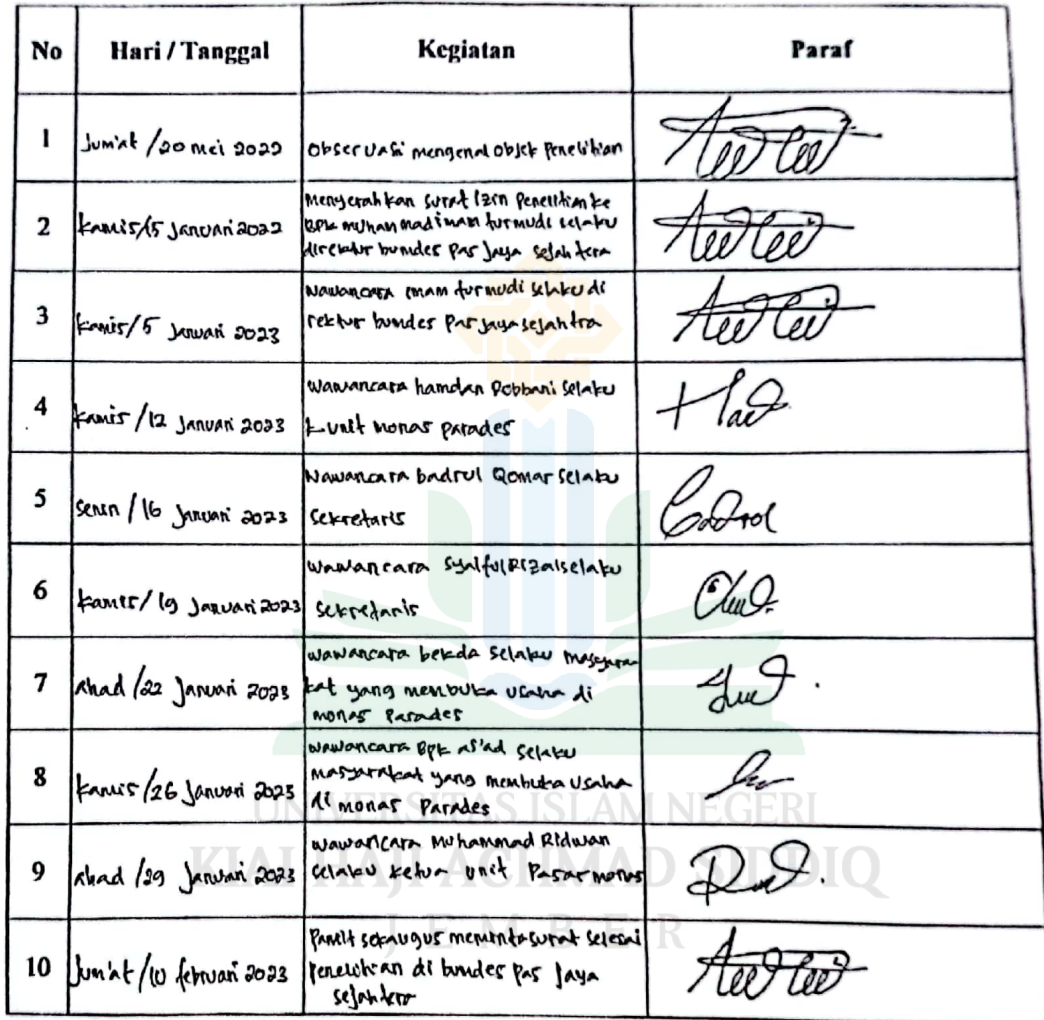 No Hari / Tanggal Kegiatan Paraf
1 Jum'at / 20 mei 2022 Observasi mengenal objek Penelitian
2 kamis/5 Januari 2022
Menyerahkan surat izin Penelitian ke
BPk muhammad imam turmudi selaku
direktur bumdes Pas Jaya sejahtera
3 kamis/5 Januari 2023
Wawancara imam turmudi selaku di
rektur bumdes Pas jaya sejahtra
4 kamis /12 Januari 2023
Wawancara hamdan Robbani selaku
k.unit Monas parades
5 senin / 16 Januari 2023
Wawancara badrul Qomar selaku
Sekretaris
6 kamis/ 19 Januari 2023
wawancara Syaiful Rizal selaku
Sekretaris
7 ahad /22 Januari 2023
wawancara bekda selaku masyara
kat yang membuka usaha di
monas Parades
8 kamis /26 Januari 2023
wawancara BPk as'ad selaku
masyarakat yang membuka usaha
di monas Parades
9 ahad /29 Januari 2023
wawancara Muhammad Ridwan
selaku ketua unit Pasar monas
10 Jum'at /10 februari 2023
meminta surat selesai
Penelitian di bumdes Pas Jaya
sejahtera
UNIVERSITAS ISLAM NEGERI
KIAI HAJI ACHMAD SIDDIQ
JEMBER